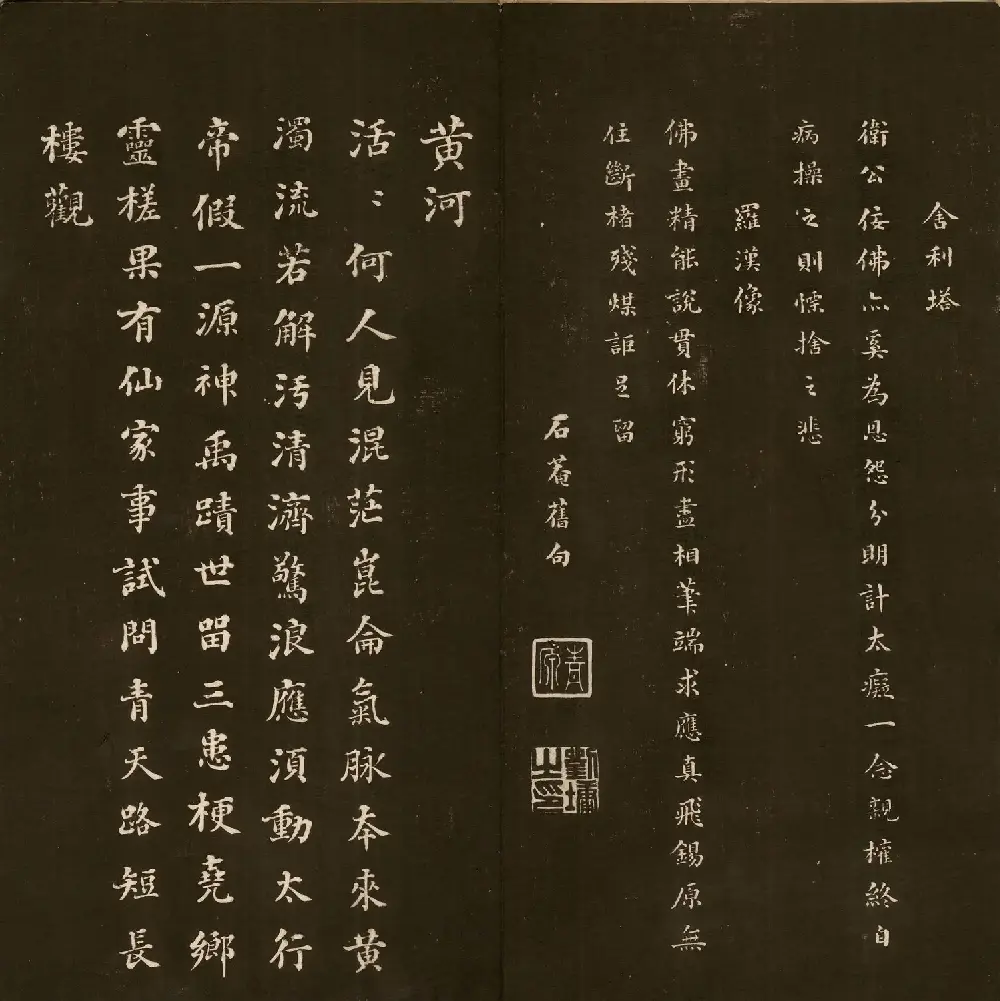 舍利塔
衛公佞佛亦奚為恩怨分明計太癡一念親權終自
病操之則慄捨之悲
羅漢像
佛畫精能說貫休窮形盡相筆端求應真飛錫原無
住斷楮殘煤詎足留
石菴舊句
青原
劉墉之印
黃河
活〻何人見混茫崑侖氣脉本來黃
濁流若解汚清濟驚浪應須動太行
帝假一源神禹蹟世留三患梗堯鄉
靈槎果有仙家事試問青天路短長
樓觀